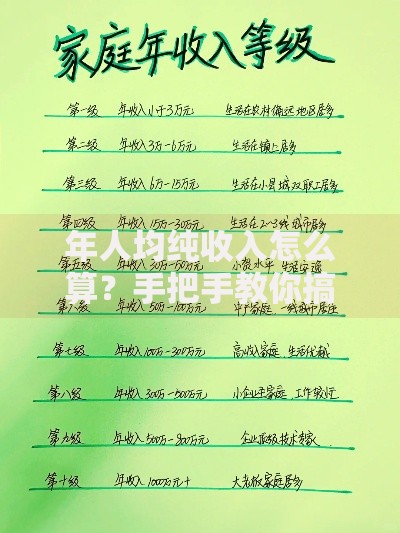 家庭年收入等级
第一级 年收入小于3万元 生活在农村偏远地区居多
第二级 年收入3万-6万元 生活在镇上居多
第三级 年收入6万-15万元 生活在小县城双职工居多
第四级 年收入15万-30万元 生活在2~3线城市居多
年人均纯收入怎么
第五级 年收入 小资水平 生活安逸
算？手把手教你搞
第六级 年收入50万-100万元 中产家庭 一线城市居住
第七级 年收入100万-300万元 高收入家庭，生活优越
第八级 年收入300万-500万元 小企业主家庭，工作较忙
第九级 年收入500万-800万元 企业顶级技术专家
第十级 年收入1000万元+ 大老板家庭居多